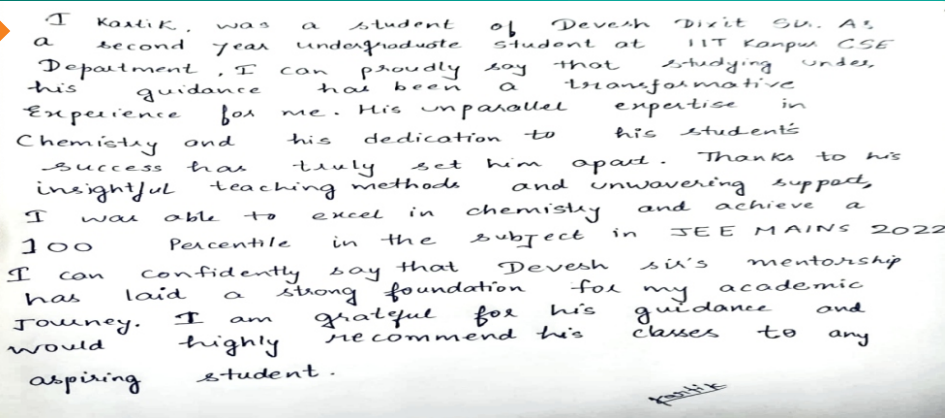 I Kartik, was a student of Devesh Dixit Sir. As
a second year undergraduate student at IIT Kanpur CSE
Department, I can proudly say that studying under,
this guidance has been a transformative
Experience for me. His unparallel expertise in
Chemistry and his dedication to his student's
success has truly set him apart. Thanks to his
insightful teaching methods and unwavering support,
I was able to excel in chemistry and achieve a
100 Percentile in the subject in JEE MAINS 2022
I can confidently say that Devesh sir's mentorship
has laid a strong foundation for my academic
Journey. I am grateful for his guidance and
would highly recommend his classes to any
aspiring student.
Kartik